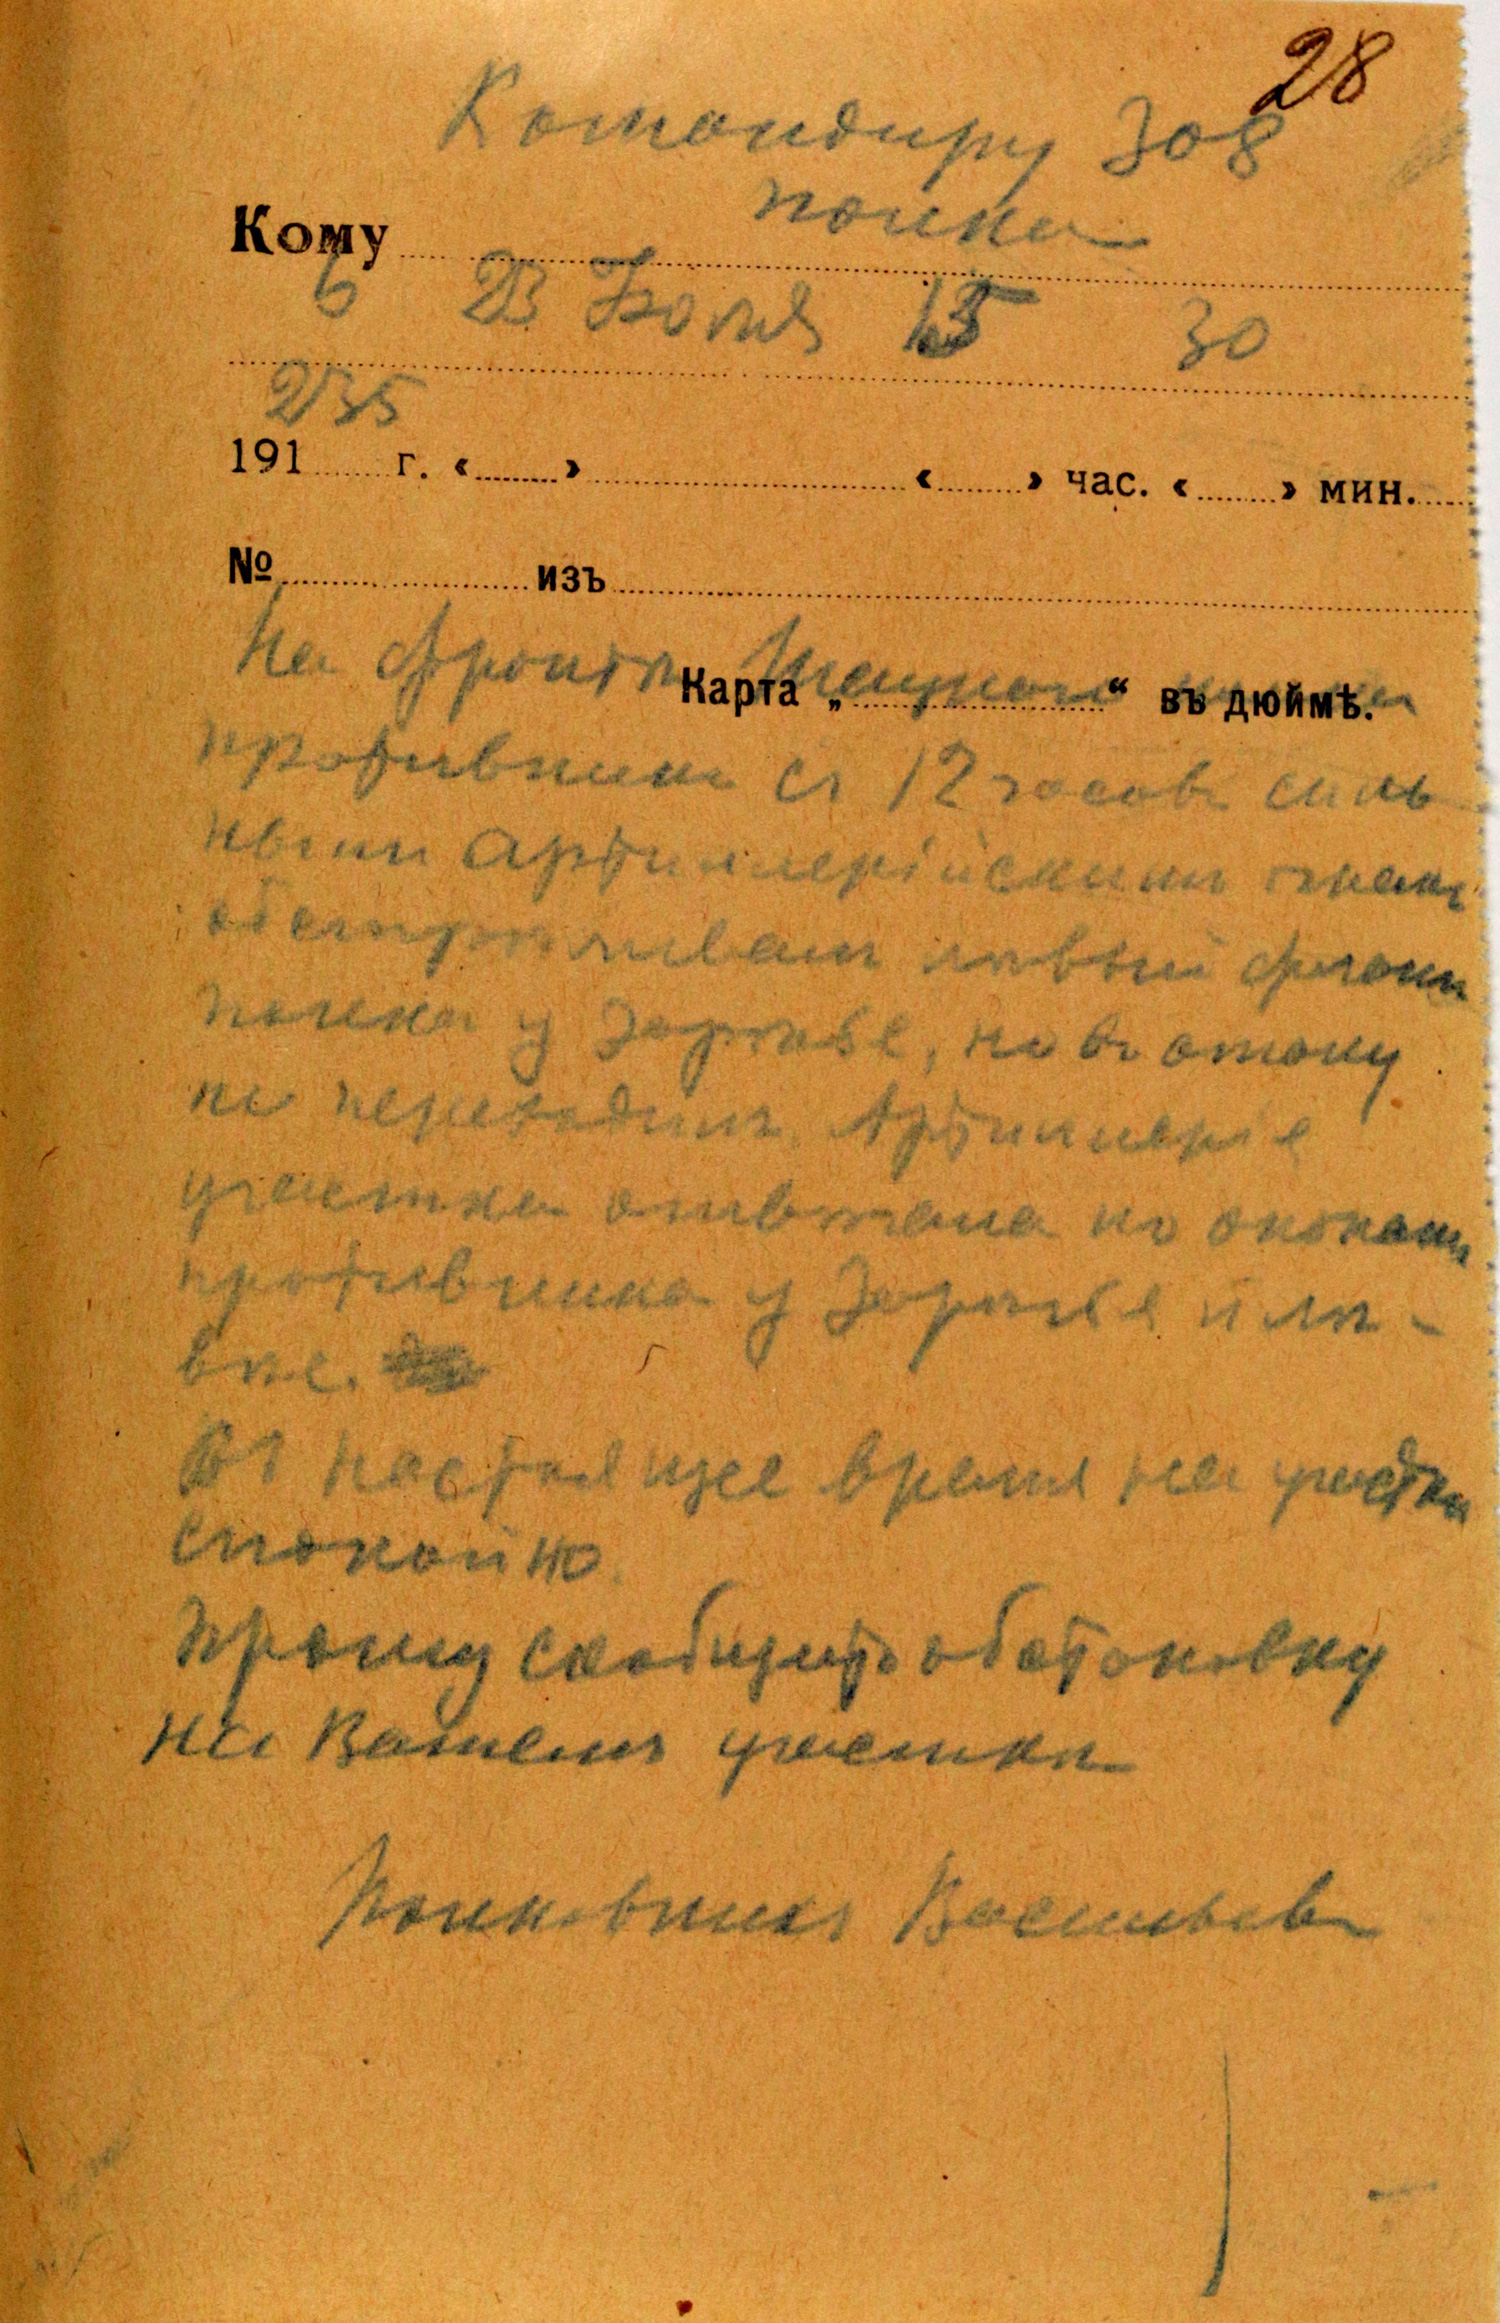 28
Командиру 308
полка
Кому
6 23 Iюля 15 30
235
191 г. « » « » час. « » мин.
№ изъ
На фронтѣ полка
Карта „ “ въ дюймѣ.
противникъ съ 12 часовъ силь
нымъ артиллерійскимъ огнемъ
обстрѣливалъ лѣвый флангъ
полка у , но въ атаку
не переходилъ. Артиллерія
участка отвѣчала по окопамъ
противника у и лѣ-
внѣе.
Въ настоящее время на участкѣ
спокойно.
Прошу сообщить обстановку
на Вашемъ участкѣ
Полковникъ Васильевъ